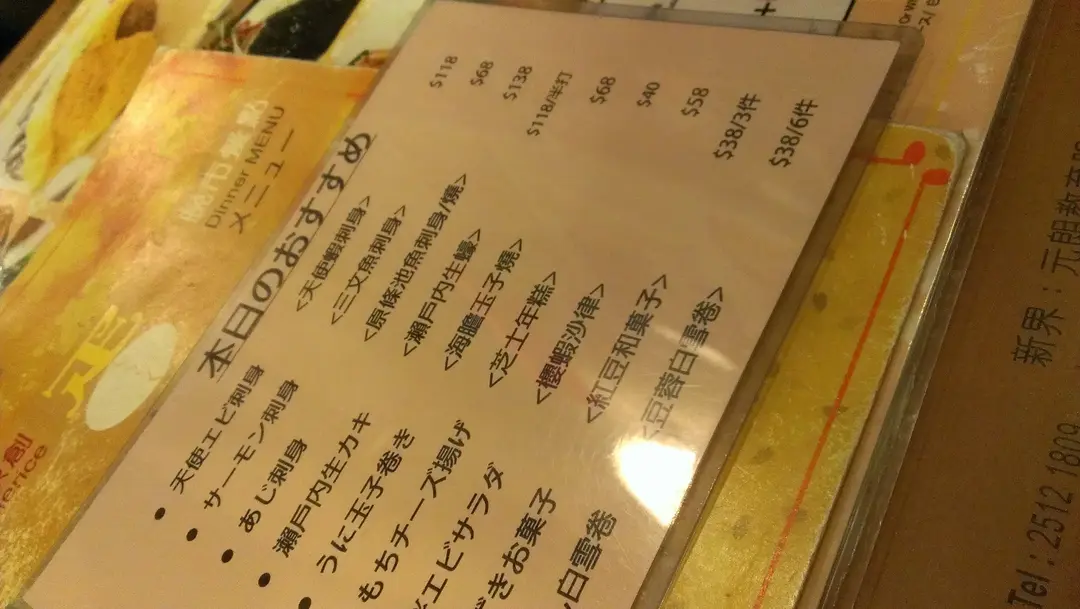 本日のおすすめ
• 天使エビ刺身 <天使蝦刺身> $118
• サーモン刺身 <三文魚刺身> $68
• あじ刺身 <原條池魚刺身/燒> $138
• 瀨戶内生カキ <瀨戶内生蠔> $118/半打
• うに玉子巻き <海膽玉子燒> $68
もちチーズ揚げ <芝士年糕> $40
エビサラダ <櫻蝦沙律> $58
きお菓子 <紅豆和菓子> $38/3件
白雪卷 豆蓉白雪卷> $38/6件
Dinner MENU
メニュー
新界：元朗教育
Tel : 2512 1809